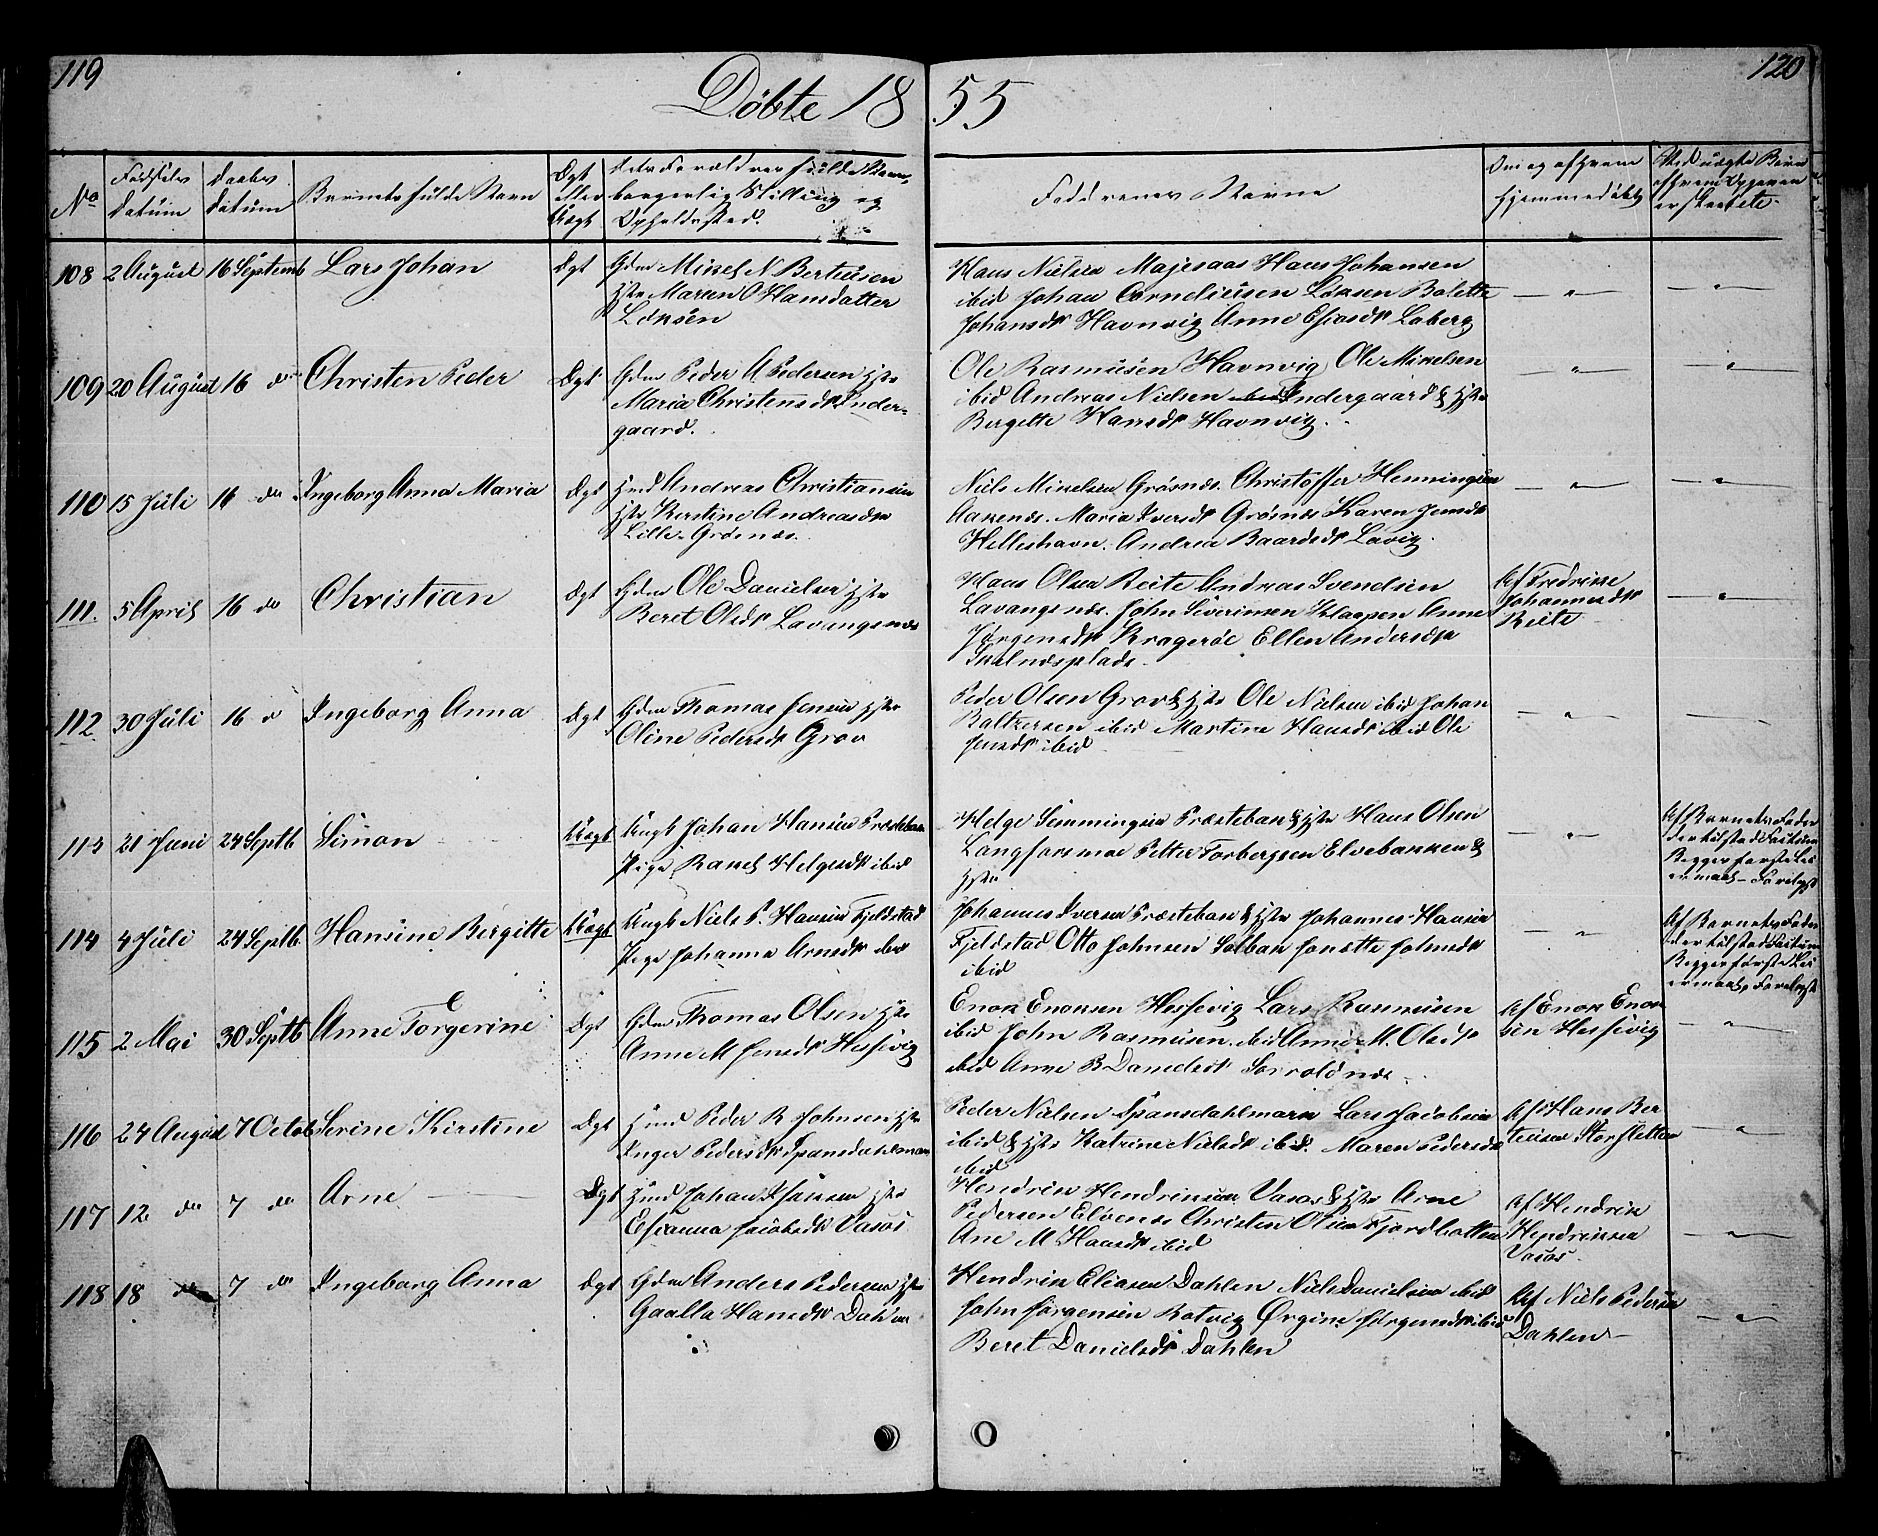 119
120
Döbte 1855
No
Fødsels Datum
Daabs Datum
Barnets fulde Navn
Ægt eller Uægt
Forældres fulde Navn, borgerlig Stilling og Opholdssted.
Faddrenes Navne
Om og af hvem hjemmedøbt
108 2 August 16 Septemb Lars Johan Ægt Gdm Mikel N Berteusen
Hstr Maren O Hansdatter
Løksen
Hans Nielsen Majesaas Hans Johansen
ibid Johan Corneliusen Løksen Bolette
Johansdt Havnvig Anne Esiasdt Laberg
109 20 August 16 do Christen Peder Ægt Gdm Peder A Pedersen Hstr
Maria Christensdt Inder-
gaard.
Ole Rasmusen Havnvig Ole Mikelsen
ibid Andreas Nielsen Indergaard & Hstr
Bergette Hansdt Havnvig.
110 15 Juli 16 do Ingeborg Anna Maria Ægt Hmd Andreas Christiansen
Hstr Kerstine Andreasdtr
Lille-Grøsnæs.
Niels Mikelsen Grøsnæs. Christoffer Henningsen
Aakenæs. Maria Iversdt Grøsnæs Karen Jensdt
Helleshavn. Andrea Baardsdt Lavig.
111. 5 April 16 do Christian Ægt Gdm Ole Danielsen Hstr
Beret Olsdt Lavangsnæs
Hans Olsen Reite Andreas Svendsen
Lavangsnæs. John Siverinsen Klappen Anne
Jørgensdt Kragerøe Ellen Andersdtr
Skalnæsplads.
Af Fredrikke
Johannesdt
Reite
112 30 Juli 16 d Ingeborg Anna Ægt Gdm Thomas Jensen Hstr
Oline Pedersdt Grov
Peder Olsen Grov & Hstr Ole Nielsen ibid Johan
Baltzersen ibid Martine Hansdt ibid Ole
Jensdt ibid
113 21 Juni 24 Septb Simon Uægt Ungk Johan Hansen Præstebak
Pige Rakel Helgesdt ibid
Helge Simmingsen Præstebak & Hstr Hans Olsen
Langforsmoe Petter Torbergsen Elvebakken &
Hstr
Af Barnets Fader
der tilstod Faitum
Begges første Lei
ermaals-Forelyst
114 4 Juli 24 Septb. Hansine Bergitte Uægt Ungk Niels P. Hansen Fjeldstad
Pige Johanna Arnesdt ibid
Johannes Iversen Præstebak & Hstr Johannes Hansen
Fjeldstad Otto Johnsen Solbak Jonette Johnsdt
ibid
Af Barnets Fader
der tilstod Faitum
Begges første Lei
ermaals Forelyst
115 2 Mai 30 Septb Anne Torgerine Ægt Gdm Thomas Olsen Hstr
Anne M Jensdt Hessevig
Enok Enoksen Hessevig Lars Rasmusen
ibid John Rasmusen ibid Anne M. Olsdt
ibid Anne B Danielsdt Sørroldnæs
Af Enok Enok
sen Hessevig
116 24 August 7 Octob Serine Kirstine Ægt Hmd Peder R Johnsen Hstr
Inger Pedersdt Spansdahlmark
Peder Nielsen Spansdahlmark Lars Jacobsen
ibid & Hstr Katrine Nielsdt ibid. Maren Pedersdt
ibid
Af Hans Ber
teusen Storsletten
117 12 do 7 do Arne Ægt Hmd Johan Hansen Hstr
Esianna Jacobsdt Vasøs
Hendrik Hendriksen Vasøs & Hstr Arne
Pedersen Elvenæs Christen Olsen Fjordbotten
Ane M Hansdt ibid
Af Hendrik
Hendriksen
Vasøs
118 18 do 7 do Ingeborg Anna Ægt Gdm Anders Pedersen Hstr
Gaalla Hansdt Dahlen
Hendrik Eliasen Dahlen Niels Danielsen ibid
John Jørgensen Rotvig Ørgine Jørgensdt ibid
Beret Danielsdt Dahlen
Af Niels Pedersen
Dahlen